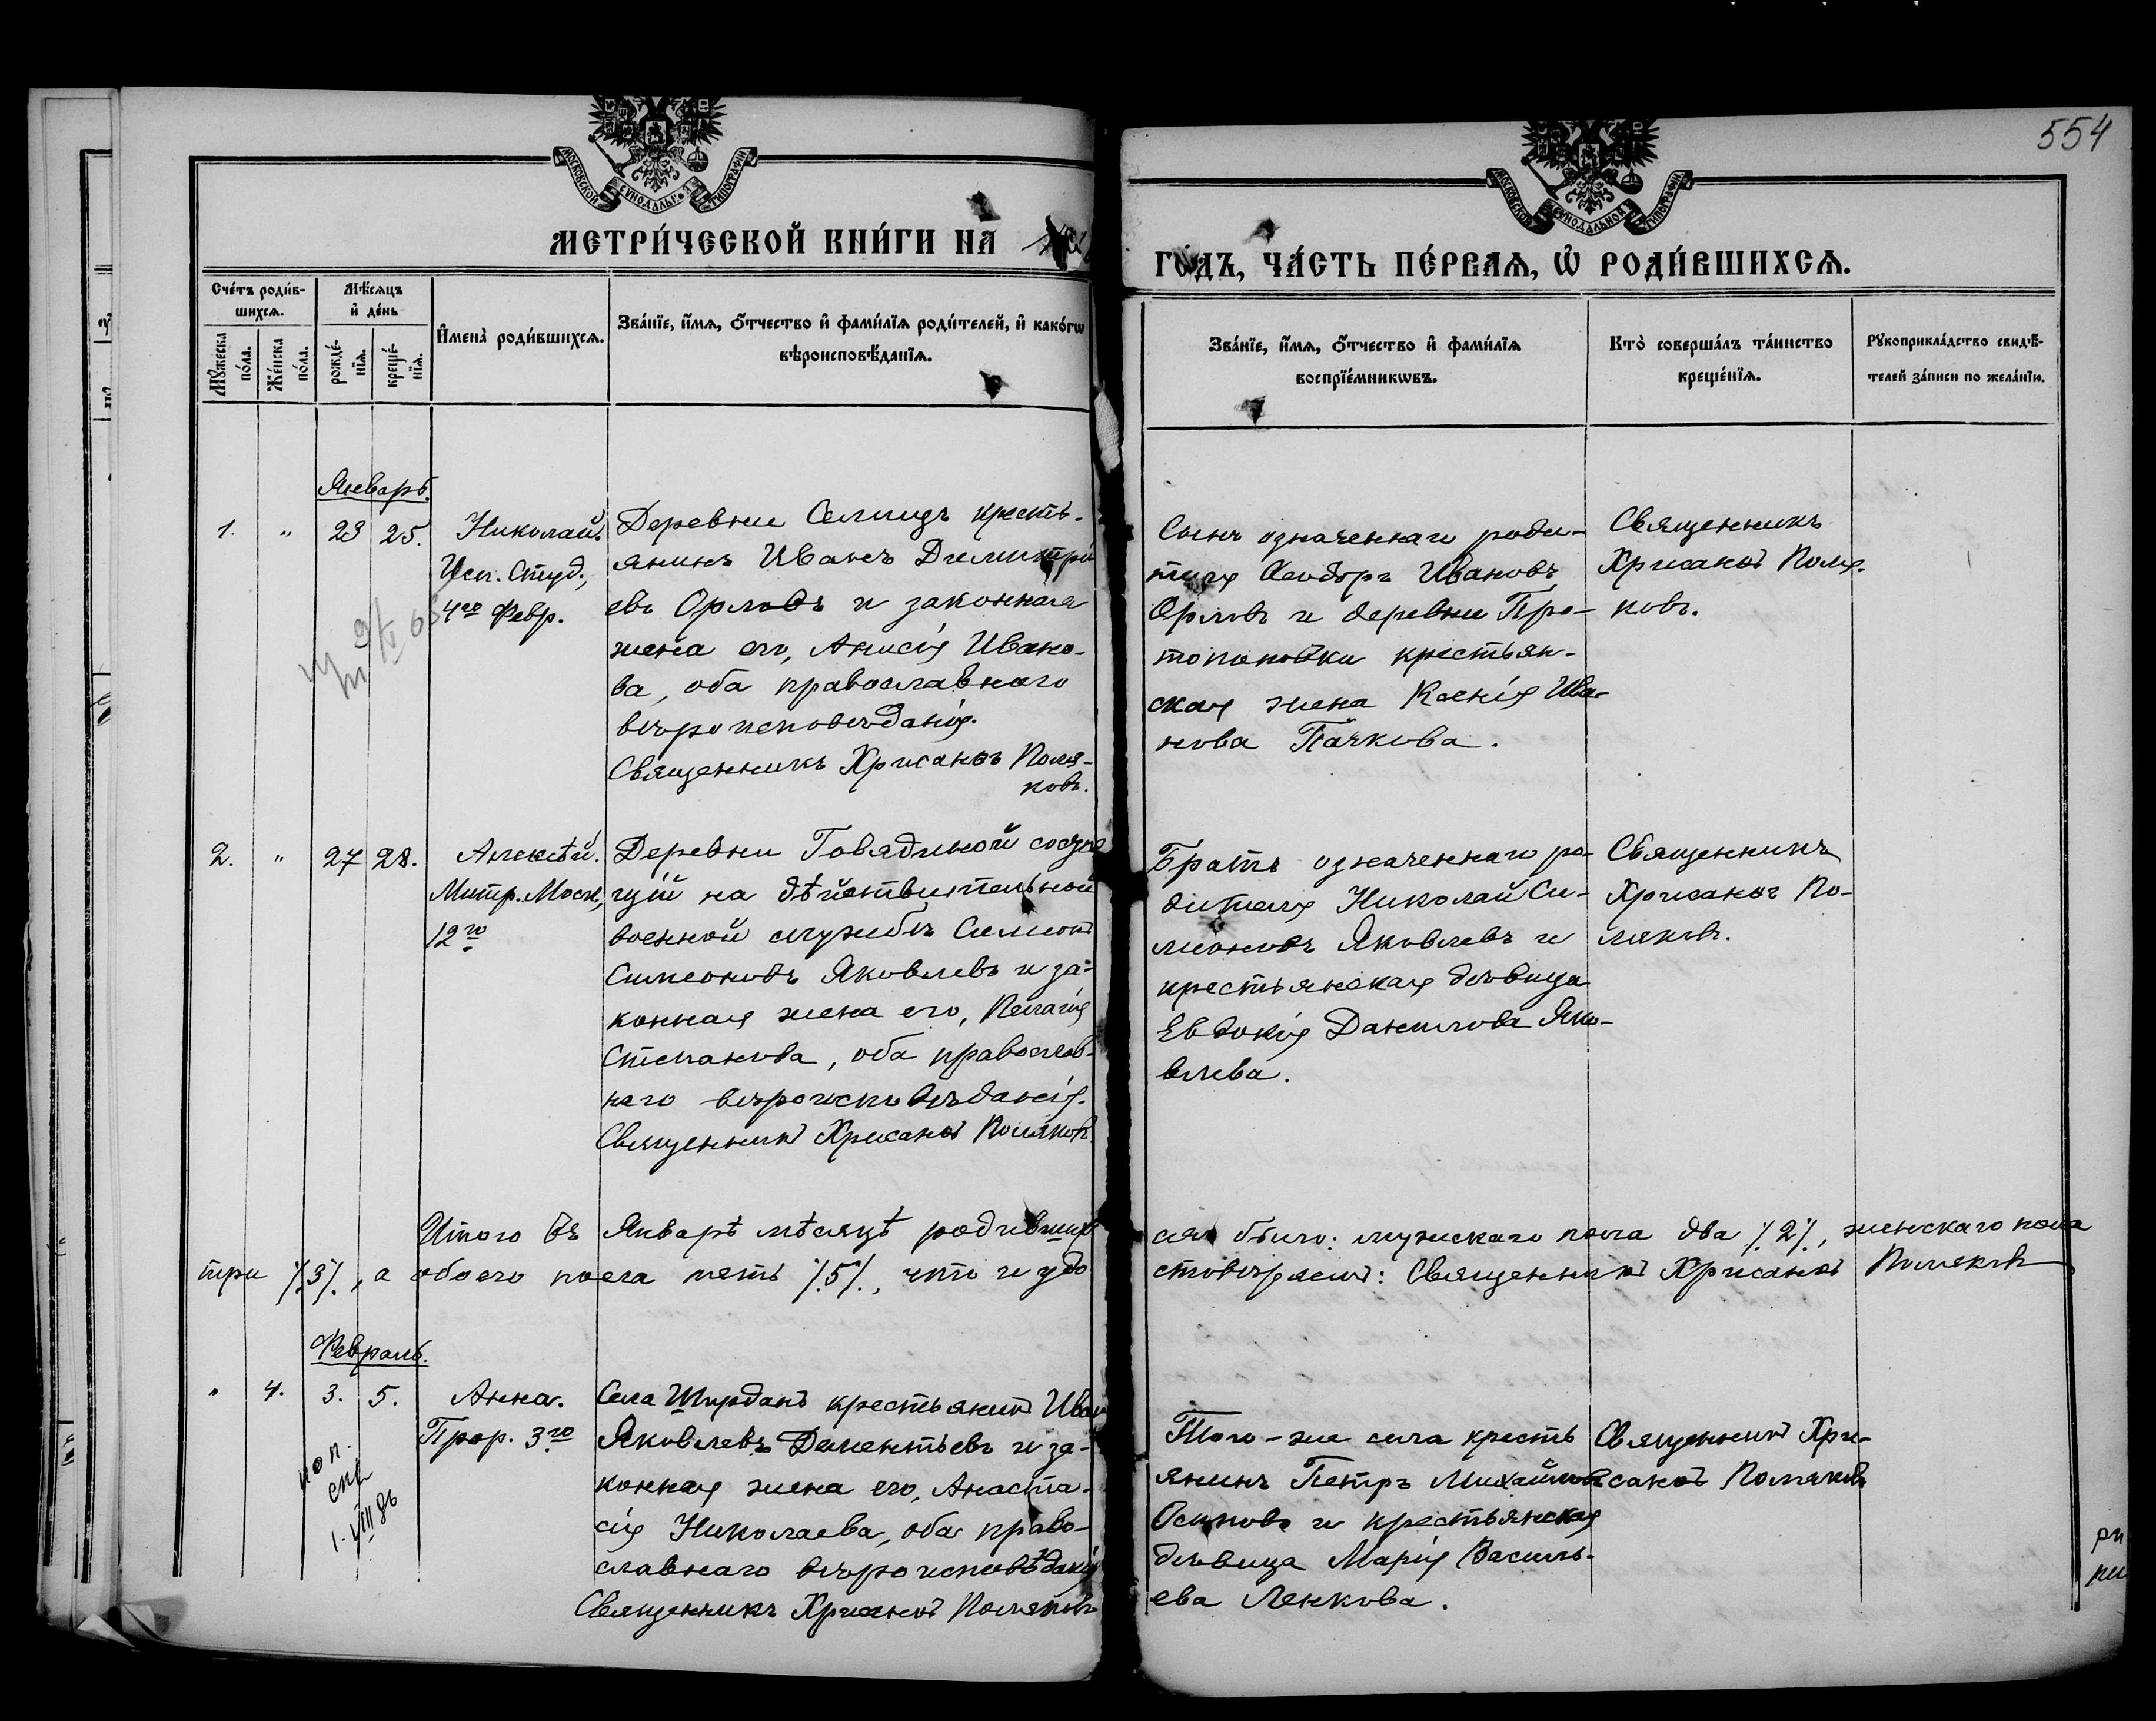 554
МОСКОВСКОЙ СѴНОДАЛЬНОЙ ТИПОГРАФІИ
МОСКОВСКОЙ СѴНОДАЛЬНОЙ ТИПОГРАФІИ
МЕТРИ́ЧЕСКОЙ КНИ́ГИ НА
ГО́ДЪ, ЧА́СТЬ ПЕ́РВАѦ, Ѡ РОДИ́ВШИХСѦ.
Сче́тъ роди́в-
шихсѧ.
Мꙋ́жеска по́ла.
Же́нска по́ла.
Мѣ́сѧцъ
и҆ де́нь
рожде́-
нїѧ.
креще́-
нїѧ.
И҆мена̀ роди́вшихсѧ.
Зва́нїе, и҆́мѧ, ѻ҆́тчество и҆ фами́лїѧ роди́телей, и҆ како́гѡ
вѣроисповѣ́данїѧ.
Зва́нїе, и҆́мѧ, ѻ҆́тчество и҆ фами́лїѧ
воспрїе́мникѡвъ.
Кто̀ соверша́лъ та́инство
креще́нїѧ.
Рꙋкоприкла́дство свидѣ́-
телей за́писи по жела́нїю.
Январь.
1. " 23 25.
Николай.
Исп. Студ.,
4го Февр.
Деревни Селищъ кресть-
янинъ Иванъ Димитрі
евъ Орловъ и законная
жена его, Анисія Ивано-
ва, оба православнаго
вѣроисповѣданія.
Священникъ Хрисанѳъ Поля-
ковъ.
Сынъ означеннаго роди-
теля Ѳеодоръ Ивановъ
Орловъ и деревни Про-
топоповки крестьян-
ская жена Ксенія Ива-
нова Пачкова.
Священникъ
Хрисанѳъ Поля-
ковъ.
2. " 27 28.
Алексѣй.
Митр. Моск.,
12го
Деревни Говядиной состоя
щій на дѣйствительной
военной службѣ Симеонъ
Симеоновъ Яковлевъ и за-
конная жена его, Пелагія
Степанова, оба православ-
наго вѣроисповѣданія.
Священникъ Хрисанѳъ Поляковъ.
Братъ означеннаго ро-
дителя Николай Си-
меоновъ Яковлевъ и
крестьянская дѣвица
Евдокія Данилова Яко-
влева.
Священникъ
Хрисанѳъ По-
ляковъ.
Итого въ Январѣ мѣсяцѣ родивших
ся было: мужескаго пола два ⁒2⁒, женскаго пола
три ⁒3⁒, а обоего пола пять ⁒5⁒, что и удо
стовѣряемъ: Священникъ Хрисанѳъ Поляковъ
Февраль.
" 4. 3. 5.
Анна.
Прор. 3го
коп.
1.VIII 86
Села Ширданъ крестьянинъ Иван
Яковлевъ Дементьевъ и за-
конная жена его, Анаста-
сія Николаева, оба право-
славнаго вѣроисповѣданія
Священникъ Хрисанѳъ Поляковъ
Того-же села кресть
янинъ Петръ Михайловъ
Осиповъ и крестьянская
дѣвица Марія Василь-
ева Ленкова.
Священникъ Хри-
санѳъ Поляковъ